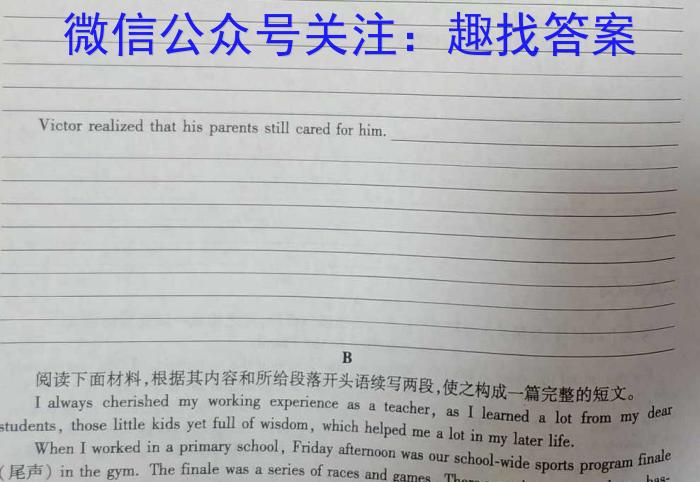 微信公众号关注：趣找答案
Victor realized that his parents still cared for him.
B
阅读下面材料,根据其内容和所给段落开头语续写两段,使之构成一篇完整的短文。
I always cherished my working experience as a teacher, as I learned a lot from my dear
students, those little kids yet full of wisdom, which helped me a lot in my later life.
When I worked in a primary school, Friday afternoon was our school-wide sports program finale
(尾声) in the gym. The finale was a series of races and games.